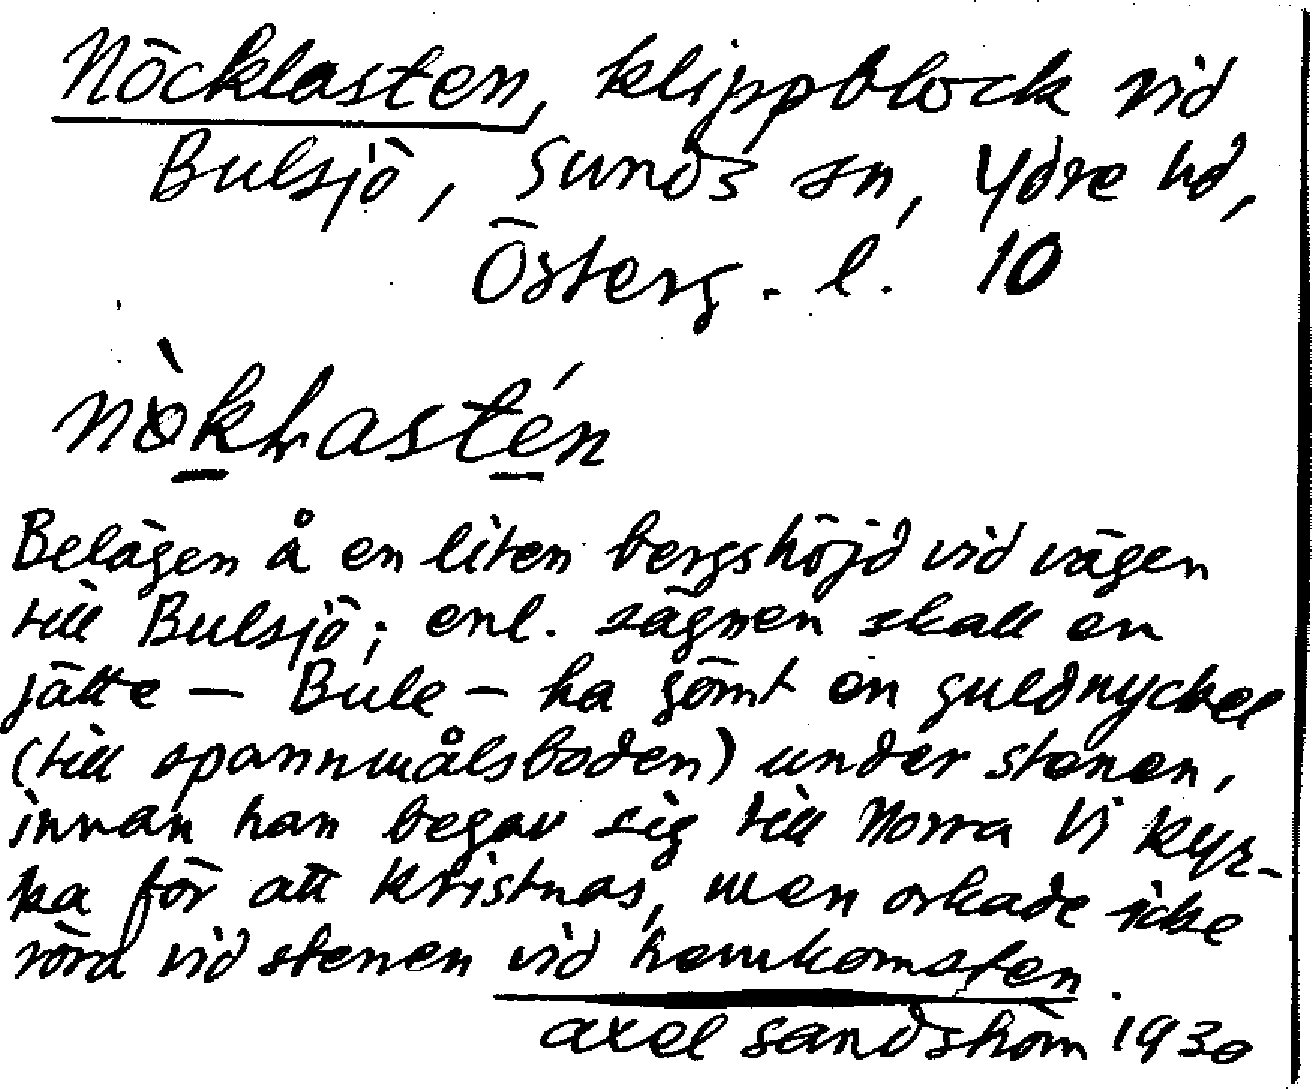 Nöcklasten, klippblock vid
Bulsjö, Sunds sn, Ydre hd,
Österg. l. 10
Belägen å en liten bergshöjd vid vägen
till Bulsjö; enl. sägnen skall en
jätte – Bule – ha gömt en guldnyckel
(till spannmålsboden) under stenen,
innan han begav sig till Norra Vi kyr-
ka för att kristnas, men orkade icke
röra vid stenen vid hemkomsten.
Axel Sandström 1930